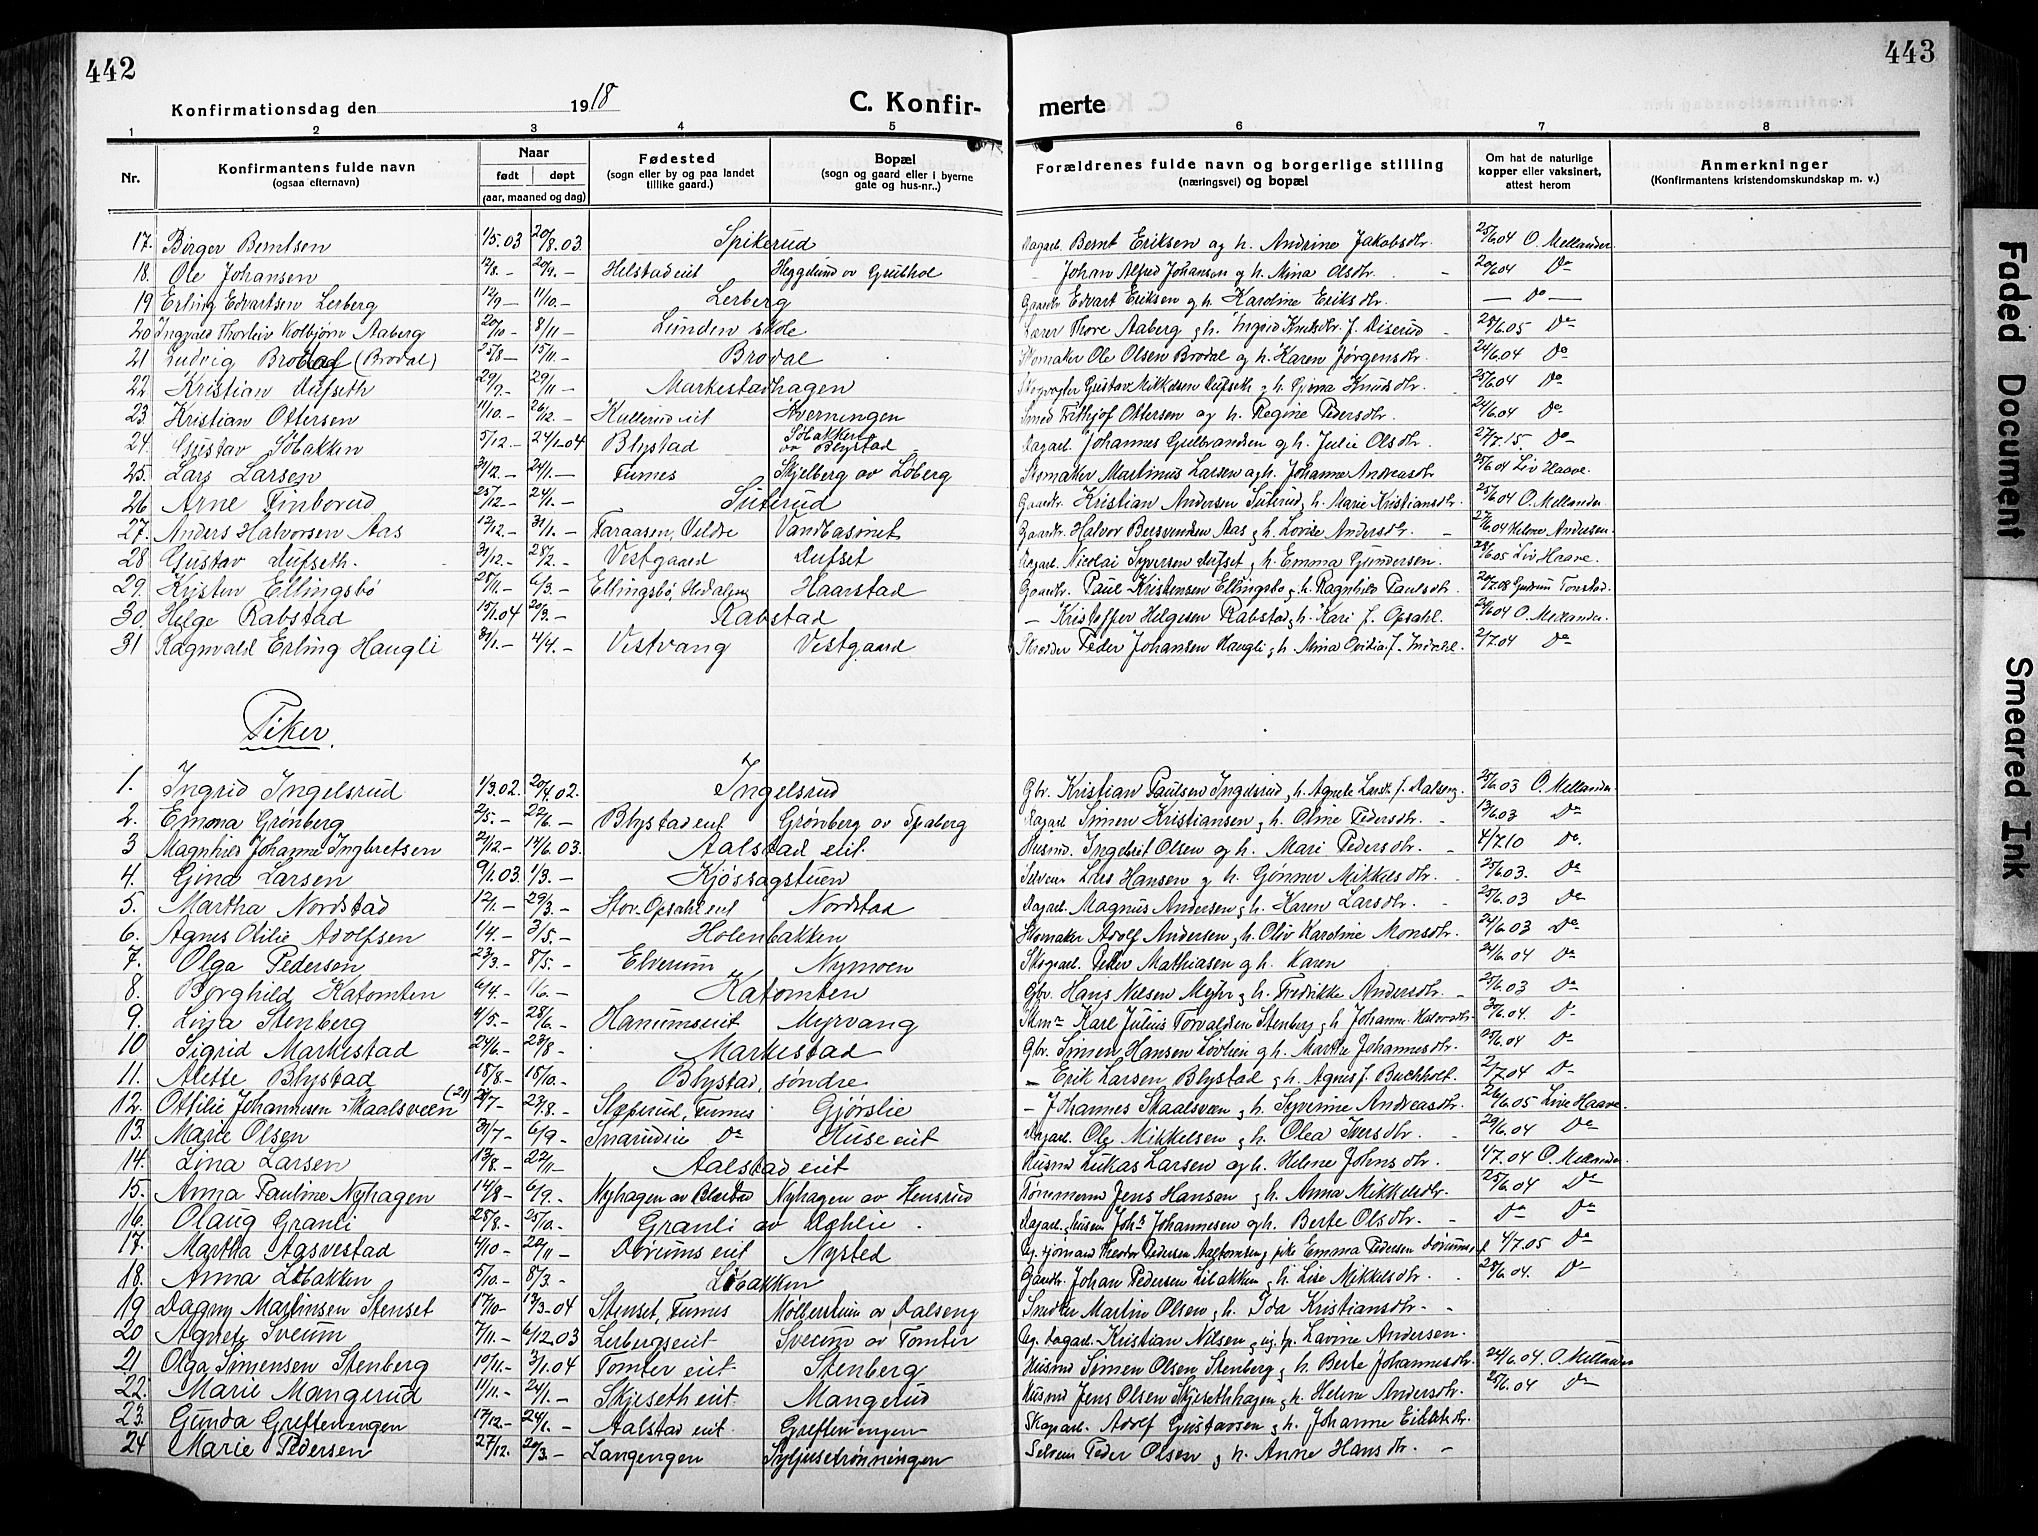 442
Konfirmationsdag den 1918
C. Konfir-
1 2 3 4 5
Nr. Konfirmantens fulde navn (ogsaa efternavn) Naar født døpt (aar, maaned og dag) Fødested (sogn eller by og paa landet tillike gaard.) Bopæl (sogn og gaard eller i byerne gate og hus-nr..)
17. Birger Berntsen 1/5.03 20/8.03 Spikerud
18. Ole Johansen 12/8.- 20/9.- Helstad eit Heggelund av Grubhol
19 Erling Edvartsen Lerberg 12/9- 11/10.- Lerberg
20 Ingvald Thorleiv Kolbjørn Aaberg 20/10- 8/11- Lunden skole
21 Ludvig (Brodal) 25/8- 15/11.- Brodal
22. Kristian Dufseth 29/9.- 29/11- Markestadhagen
23. Kristian Ottersen 11/10.- 26/12.- Kullerud eit Kverningen
24. Gustav Söbakken 5/12.- 24/1.04 Blystad Söbakken av Blystad
25. Lars Larsen 31/12.- 24/1.- Furnes Skjelberg av Löberg
26 Arne Finborud 25/12.- 24/1.- Suterud
27. Anders Halvorsen Aas 12/12.- 31/1.- Faraasen, Veldre Vandbasinet
28 Gustav Dufseth. 31/12.- 28/2.- Vestgaard Dufset
29. Kristen Ellingsbö 25/11.- 6/3.- Ellingsbö, Hedalen Haarstad
30. Helge Rabstad 15/1.04 20/3.- Rabstad
31 Ragnvald Erling Haugli 31/1.- 4/4.- Vestvang Vestgaard
Piker.
1. Ingrid Ingelsrud 1/3.02. 20/4.02. Ingelsrud
2. Emma Grönberg 2/5.- 22/6.- Blystad eit Grönberg av Spaberg
3 Magnhild Johanne Ingbretsen 24/12.- 14/6.03. Aalstad eit.
4. Gina Larsen 9/1.03. 1/3.- Kjössagstuen
5. Martha Nordstad 12/1.- 29/3.- Stor-Opsahl eit Nordstad
6. Agnes Otilie Adolfsen 1/4.- 3/5.- Holenbakken
7. Olga Pedersen 23/3.- 8/5.- Elverum Nymoen
8. Borghild Katomten 6/4.- 1/6.- Katomten
9. Lina Stenberg 4/5.- 28/6.- Hanumseit Myrvang
10 Sigrid Markestad 24/6.- 23/8- Markestad
11. Alette Blystad 18/8.- 18/10.- Blystad, söndre
12. Ottilie Johannesen Skaalsveen 21/7- 23/8.- Slæperud, Furnes Gjörslie
13. Marie Olsen 31/7- 6/9- Snarudsie Do Huse eit
14. Lina Larsen 13/8.- 22/11- Aalstad eit
15. Anna Pauline Nyhagen 14/8- 6/9.- Nyhagen av Nyhagen av Stensrud
16. Olaug Granli 25/8.- 25/10.- Granli av Dæhlie.
17. Martha Aasvestad 4/10- 20/11- Dörums eit Nysted
18. Anna Libakken 5/10.- 8/3.- Libakken
19 Dagny Martinsen Stenset 17/10- 13/3-04 Stenset, Furnes Möllerstuen av Dalseng
20 Agnete Sveum 7/11.- 6/12.03 Lerbergseit Sveum av Tomter
21 Olga Simensen Stenberg 10/11.- 3/1.04 Tomter eit. Stenberg
22. Marie Mangerud 11/11.- 24/1.- Skjeseth eit. Mangerud
23. Gunda Greftenengen 17/12.- 24/1.- Aalstad eit. Greftenengen
24 Marie Pedersen 27/12. 20/3.- Langengen Syljusetrønningen
443
merte
6 7 8
Forældrenes fulde navn og borgerlige stilling (næringsvei) og bopæl Om hat de naturlige kopper eller vaksinert, attest herom Anmerkninger (Konfirmantens kristendomskundskap m. v.)
Dagarb. Bernt Eriksen og h. Andrine Jakobsdtr. 25/6.04 O. Mellander
- Johan Alfred Johansen og h. Mina Olsdtr. - 20/6.04 Do
Gaardbr Edvart Eriksen og h. Karoline Eriksdtr. — Do —
Lærer Thore Aaberg og h. Ingrid Knutsdtr. f. Diserud - 28/6.05 Do
Skomaker Ole Olsen Brodal og h. Karen Jörgensdtr. 24/6.04 Do
Skogvogter Gustav Mikkelsen Dufseth og h. Gina Knutsdtr. 25/6.04 Do
Smed Fridtjof Ottersen og h. Regine Pedersdtr. 24/6.04 Do
Dagarb. Johannes Gulbrandsen og h. Julie Olsdtr. 27/7.15. Do
Skomaker Martinus Larsen og h. Johanne Andreasdtr. 25/6.04 Liv Haave.
Gaardbr. Kristian Andersen Suterud, h. Marie Kristiansdtr. 25/6.04 O. Mellander
Gaardbr. Halvor Bersvendsen Aas og h. Lovise Andersdtr. - 27/6.04 Helene Andersen.
Dagarb. Nicolai Syversen Dufset og h. Emma Gundersen. 28/6.05 Liv Haave.
Gaardbr. Paul Kristensen Ellingsbo og h. Ragnhild Paulsdtr. 20/7.08 Gudrun Fonstad.
- Kristoffer Helgesen Rabstad og h. Kari f. Opsahl. 24/6.04 O. Mellander.
Skrædder Peder Johansen Haugli og h. Mina Ovidia f. Indahl. 2/7.04 Do
Gbr. Kristian Paulsen Ingelsrud og h. Agnete Larsdt. f. Dalseng. 25/6.03 O. Mellander
Dagarb. Simen Kristiansen og h. Oline Pedersdtr. - 13/6.03 Do
Husmd. Ingebret Olsen og h. Mari Pedersdtr. - 4/7.10 Do.
Selveier Lars Hansen og h. Gönner Mikkelsdtr. 25/6.03. Do
Dagarb. Magnus Andersen og h. Karen Larsdtr. - 25/6.03 Do
Skomaker Adolf Andersen og h. Oliv Karoline Monsdtr. 24/6.03 Do
Skogsarb. Peder Mathiasen og h. Karen 24/6.04 Do
Gbr. Hans Nilsen Myhr og h. Fredrikke Andersdtr. - 25/6.03 Do
Karl Julius Torvaldsen Stenberg og h. Johanne Halvorsdtr 30/6.04. Do
Gbr. Simen Hansen Lövlien og h. Marthe Johannesdtr. 25/6.04 Do
— Erik Larsen Blystad og h. Agnes f. Buchholt. 2/7.04 Do
- Johannes Skaalsveen og h. Syverine Andreasdtr. 26/6.05 Live Haave.
Dagarb. Ole Mikkelsen og h. Olea Iversdtr. - 29/6.04 Do
Husmd Lukas Larsen og h. Helene Johnsdtr. 4/7.04 O. Mellander
Tömmermd Jens Hansen og h. Anna Mikkelsdtr. 25/6.04 Do
Dagarb. Johs Johannesen og h. Berte Olsdtr. - Do Do
Ug. sjömand Theodor Pedersen pike Emma Pedersen Dörums eit 4/7.05 Do
Gaardbr. Johan Pedersen Libakken og h. Lise Mikkelsdtr. - 25/6.04. Do
Snedker Martin Olsen og h. Ida Kristiansdtr -
Ug. Dagarb. Kristian Nilsen og ug. p. Lavine Andersen.
Husmd Simen Olsen Stenberg og h. Berte Johannesdtr. 24/6.04. O. Mellander
Husmd Jens Olsen Skjesethhagen og h. Helene Andersdtr. 25/6.04 Do
Skogarb. Adolf Gustavsen og h. Johanne
Selveier Peder Olsen og h. Anne Hansdtr. -
Faded Document
Smeared Ink